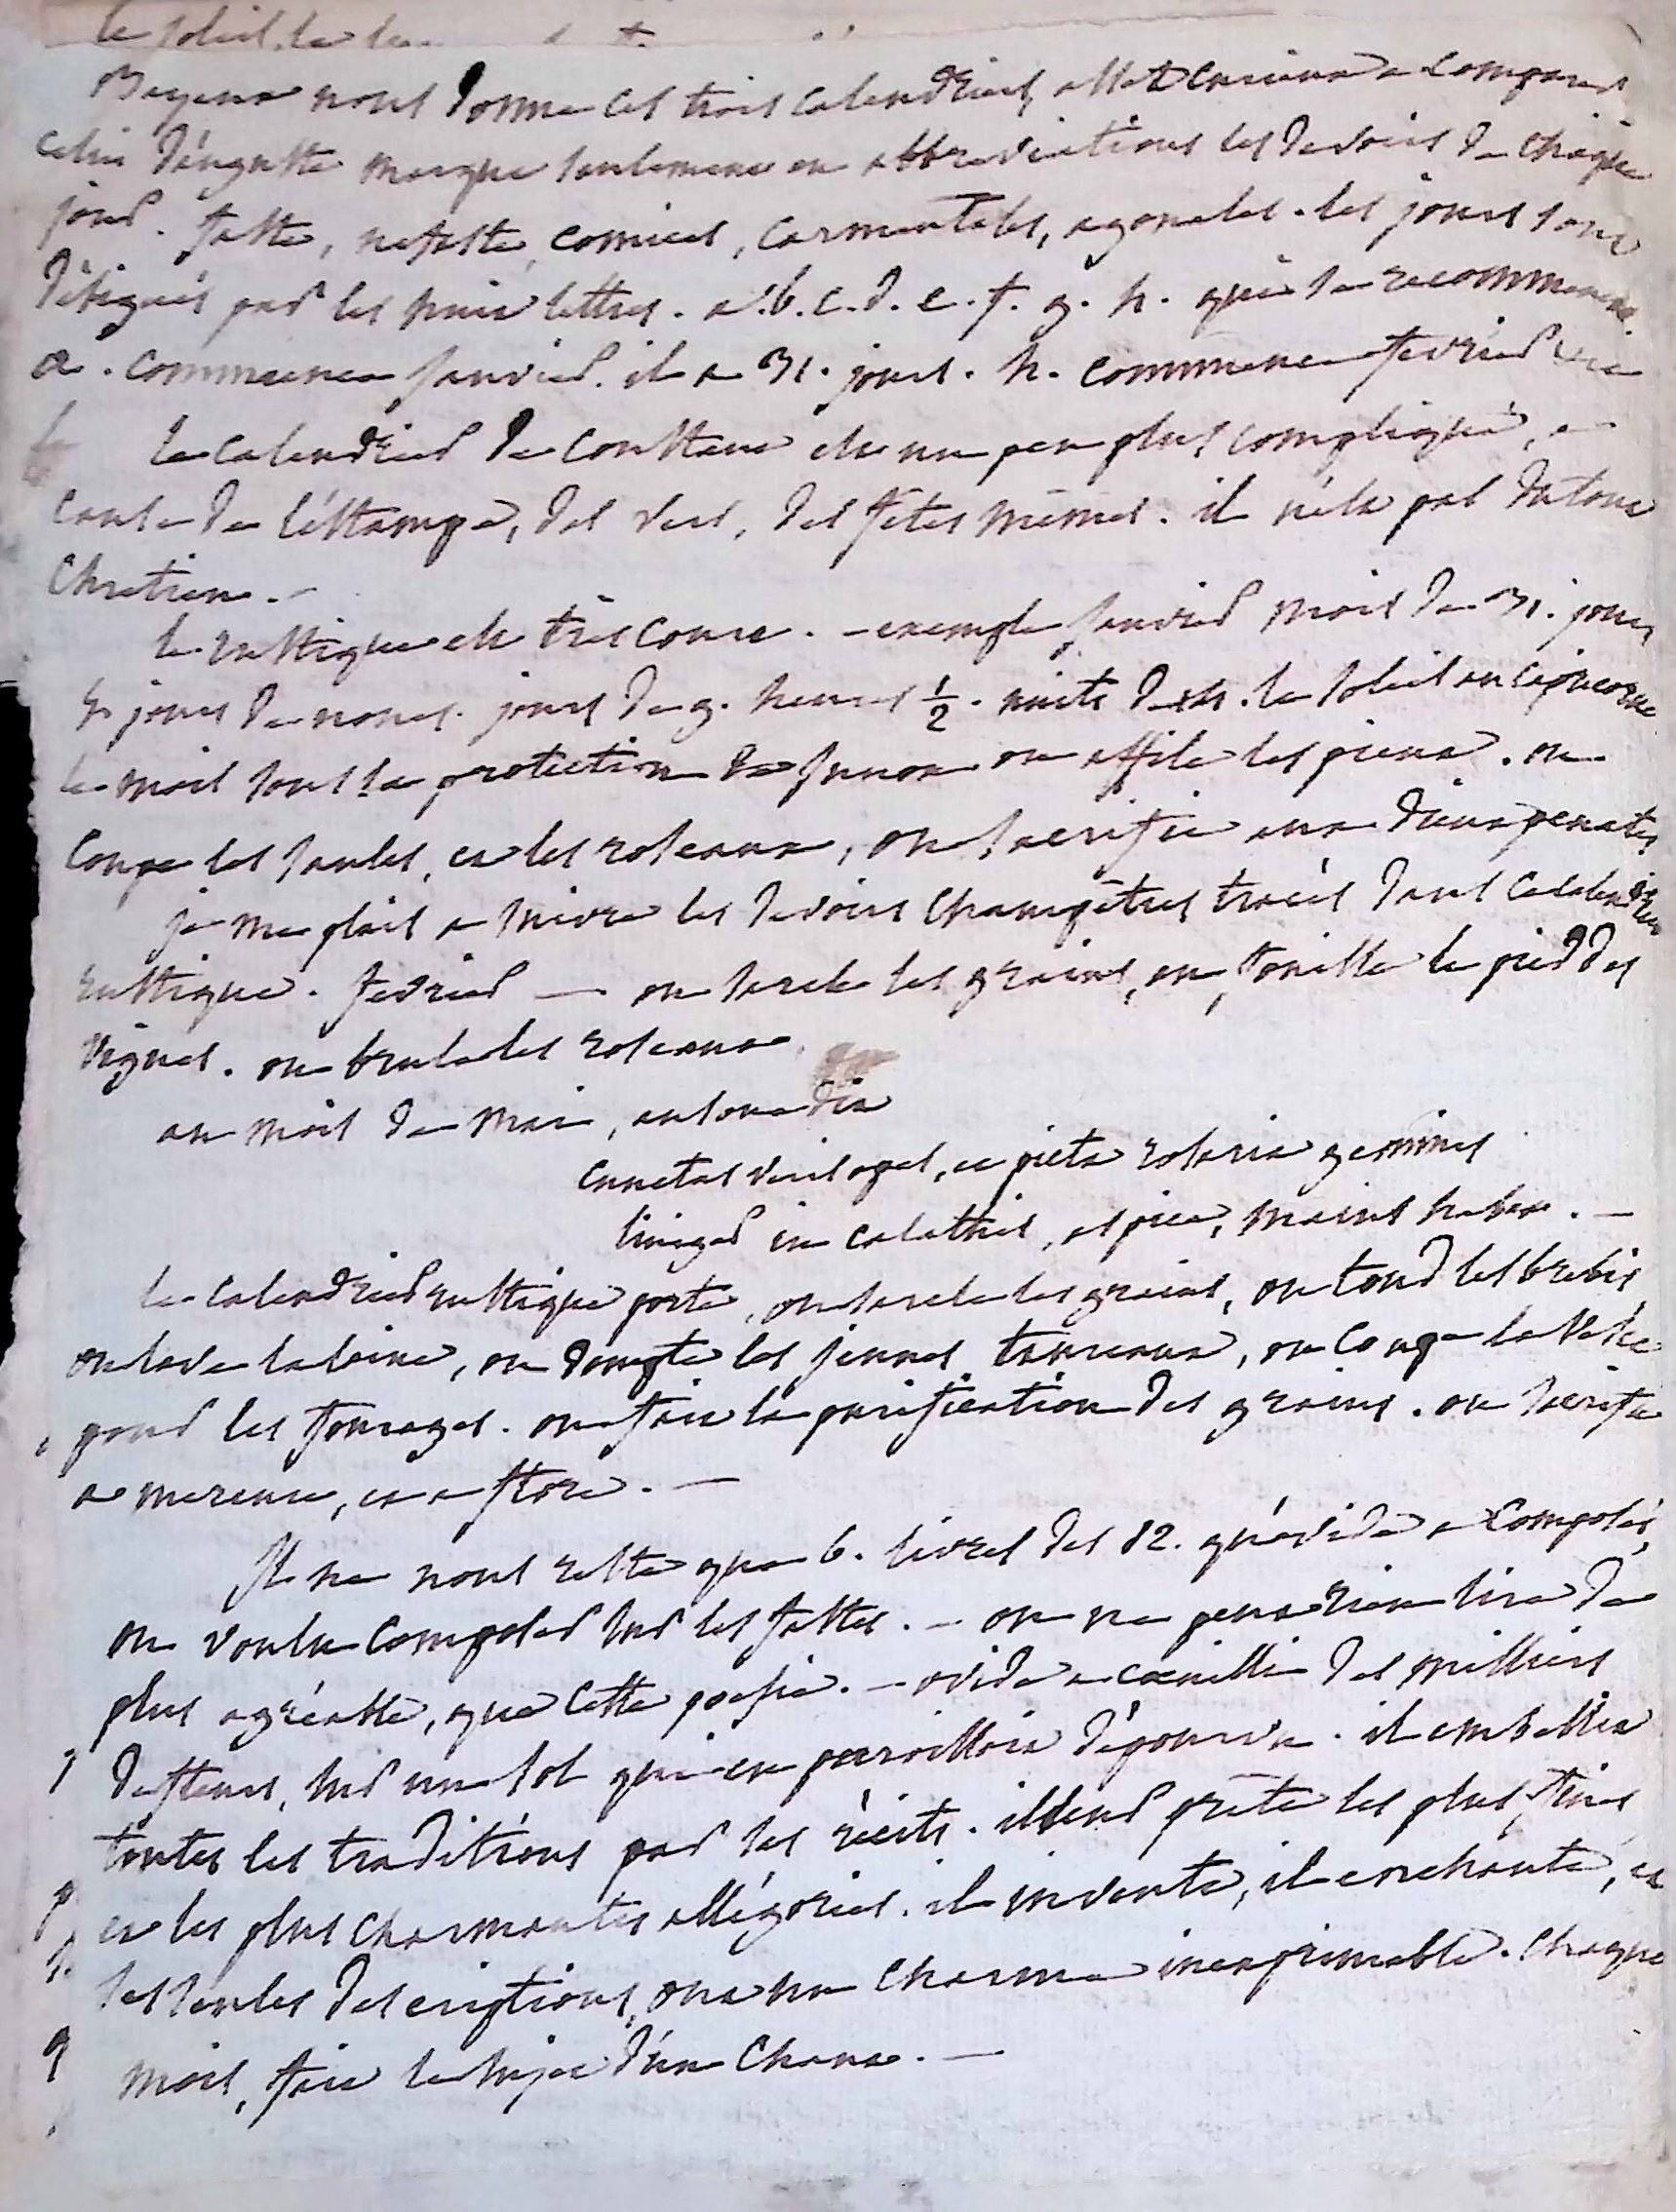 le soleil, la
Bayeux nous donne ces trois calendriers, assez curieux a comparer
celui d'auguste marque seulement en abbreviations les devoirs de chaque
jour. faste, nefaste, comices, carmentales, agonales. les jours sont
désignés par les huit lettres. a. b. c. d. e. f. g. h. qui se recommencent.
a. commence janvier. il a 31. jours. h. commence fevrier &ca
le calendrier de constance est un peu plus compliqué, a
cause de l'éstampe, des vers, des fêtes mêmes. il n'est pas du tout
Chretien. -
le rustique est très court. - exemple janvier mois de 31. jours
jours de nones. jours de 9. heures ½. nuits de 14. le soleil au capricorne
le mois sous la protection de Junon on affile les pieux. on
coupe les saules, et les roseaux, on sacrifie aux dieux penates
je me plais a suivre les devoirs champêtres tracés dans ce calendrier
rustique. fevrier — on sarcle les grains, on fouille le pied des
vignes. on brule les roseaux.
au mois de mai, ausone dit
cunctas veris opes, et picta rosaria gemmis
liniger in calathis, aspice, maius habet. -
le calendrier rustique porte, on sarcle les grains, on tond les brebis,
on lave la laine, on dompte les jeunes taureaux, on coupe la vesce
pour les fourages. on fait la purification des grains. on sacrifie
a mercure, et a flore. —
Il ne nous reste que 6. livres des 12. qu'ovide a composés,
ou voulu composer sur les fastes. - on ne peut rien lire de
plus agréable, que cette poesie. - ovide a cueilli des milliers
de fleurs, sur un sol qui en paroissoit dépourvu. il embellit
toutes les traditions par ses récits. il leur prête les plus fines
et les plus charmantes allégories. il invente, il enchante, et
ses seules descriptions, ont un charme inexprimable. Chaque
mois, fait le sujet d'un Chant. —